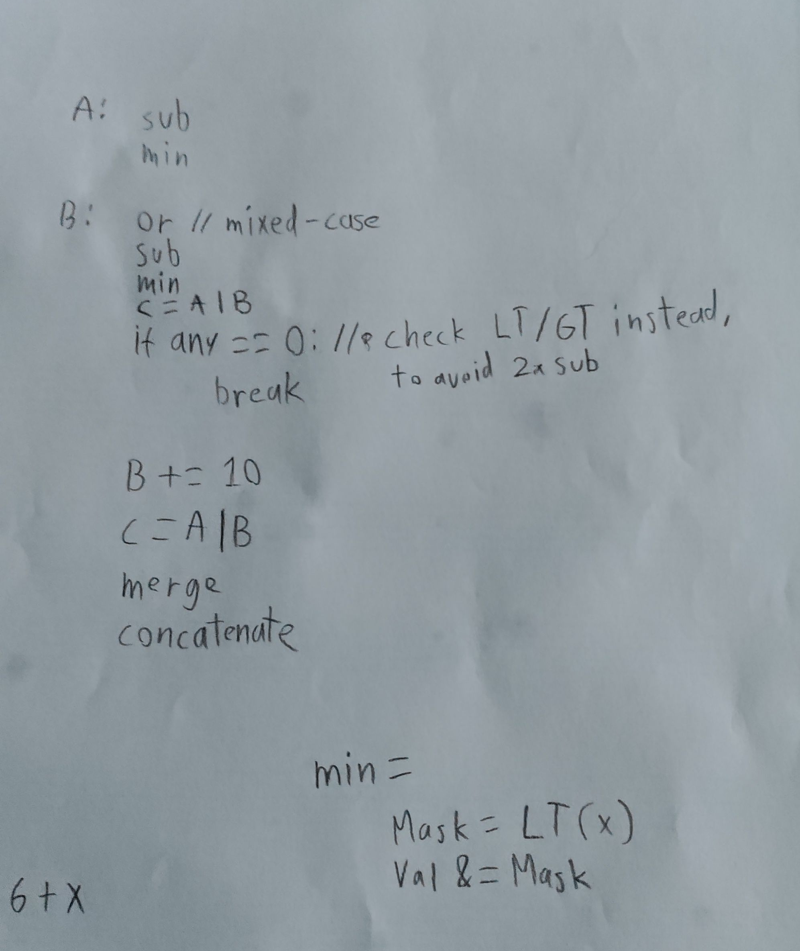 A: sub
min
B: or // mixed-case
sub
min
C = A | B
if any == 0: // check LT/GT instead,
to avoid 2x sub
break
B += 10
C = A | B
merge
concatenate
min =
Mask = LT(x)
Val &= Mask
6+x